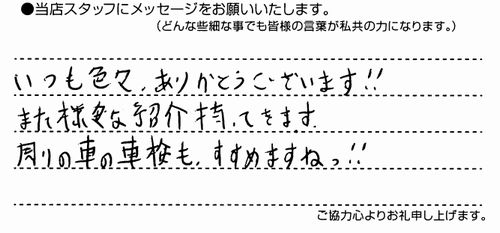 ●当店スタッフにメッセージをお願いいたします。
（どんな些細な事でも皆様の言葉が私共の力になります。）
いつも色々、ありがとうございます!!
また様々な紹介持ってきます
周りの車の車検も、すすめますねっ!!
ご協力心よりお礼申し上げます。